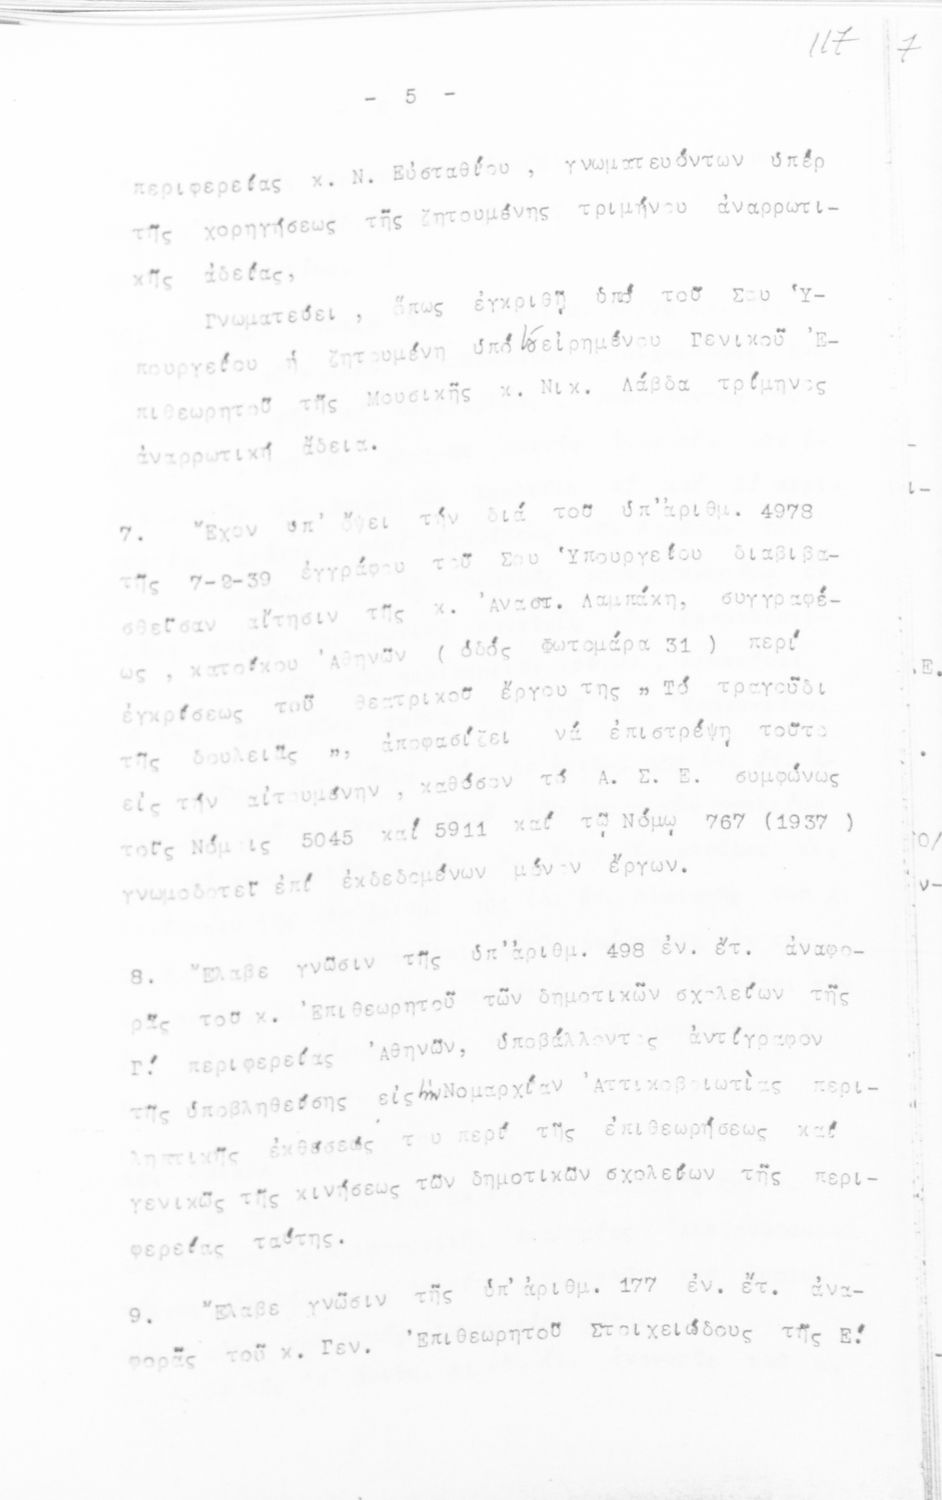 117 7
- 5 -
περιφερείας κ. Ν. Εὐσταθίου , γνωματευόντων ὑπέρ
τῆς χορηγήσεως τῆς ζητουμένης τριμήνου ἀναρρωτι-
κῆς ἀδείας,
Γνωματεύει , ὅπως ἐγκριθῇ ὑπό τοῦ Σου Ὑ-
πουργείου ἡ ζητουμένη ὑπό τοῦ εἰρημένου Γενικοῦ Ἐ-
πιθεωρητοῦ τῆς Μουσικῆς κ. Νικ. Λάβδα τρίμηνος
ἀναρρωτική ἄδεια.
7. Ἔχον ὑπ' ὄψει τήν διά τοῦ ὑπ'ἀριθμ. 4978
τῆς 7-2-39 ἐγγράφου τοῦ Σου Ὑπουργείου διαβιβα-
σθεῖσαν αἴτησιν τῆς κ. Ἀναστ. Λαμπάκη, συγγραφέ-
ως , κατοίκου Ἀθηνῶν ( ὁδός Φωτομάρα 31 ) περί
ἐγκρίσεως τοῦ θεατρικοῦ ἔργου της " Τό τραγοῦδι
τῆς δουλειᾶς ", ἀποφασίζει νά ἐπιστρέψῃ τοῦτο
εἰς τήν αἰτουμένην , καθόσον τό Α. Σ. Ε. συμφώνως
τοῖς Νόμοις 5045 καί 5911 καί τῷ Νόμῳ 767 (1937 )
γνωμοδοτεῖ ἐπί ἐκδεδομένων μόνον ἔργων.
8. Ἔλαβε γνῶσιν τῆς ὑπ'ἀριθμ. 498 ἐν. ἔτ. ἀναφο-
ρᾶς τοῦ κ. Ἐπιθεωρητοῦ τῶν δημοτικῶν σχολείων τῆς
Γ! περιφερείας Ἀθηνῶν, ὑποβάλλοντος ἀντίγραφον
τῆς ὑποβληθείσης εἰς τήν Νομαρχίαν Ἀττικοβοιωτίας περι-
ληπτικῆς ἐκθέσεώς του περί τῆς ἐπιθεωρήσεως καί
γενικῶς τῆς κινήσεως τῶν δημοτικῶν σχολείων τῆς περι-
φερείας ταύτης.
9. Ἔλαβε γνῶσιν τῆς ὑπ'ἀριθμ. 177 ἐν. ἔτ. ἀνα-
φορᾶς τοῦ κ. Γεν. Ἐπιθεωρητοῦ Στοιχειώδους τῆς Ε!